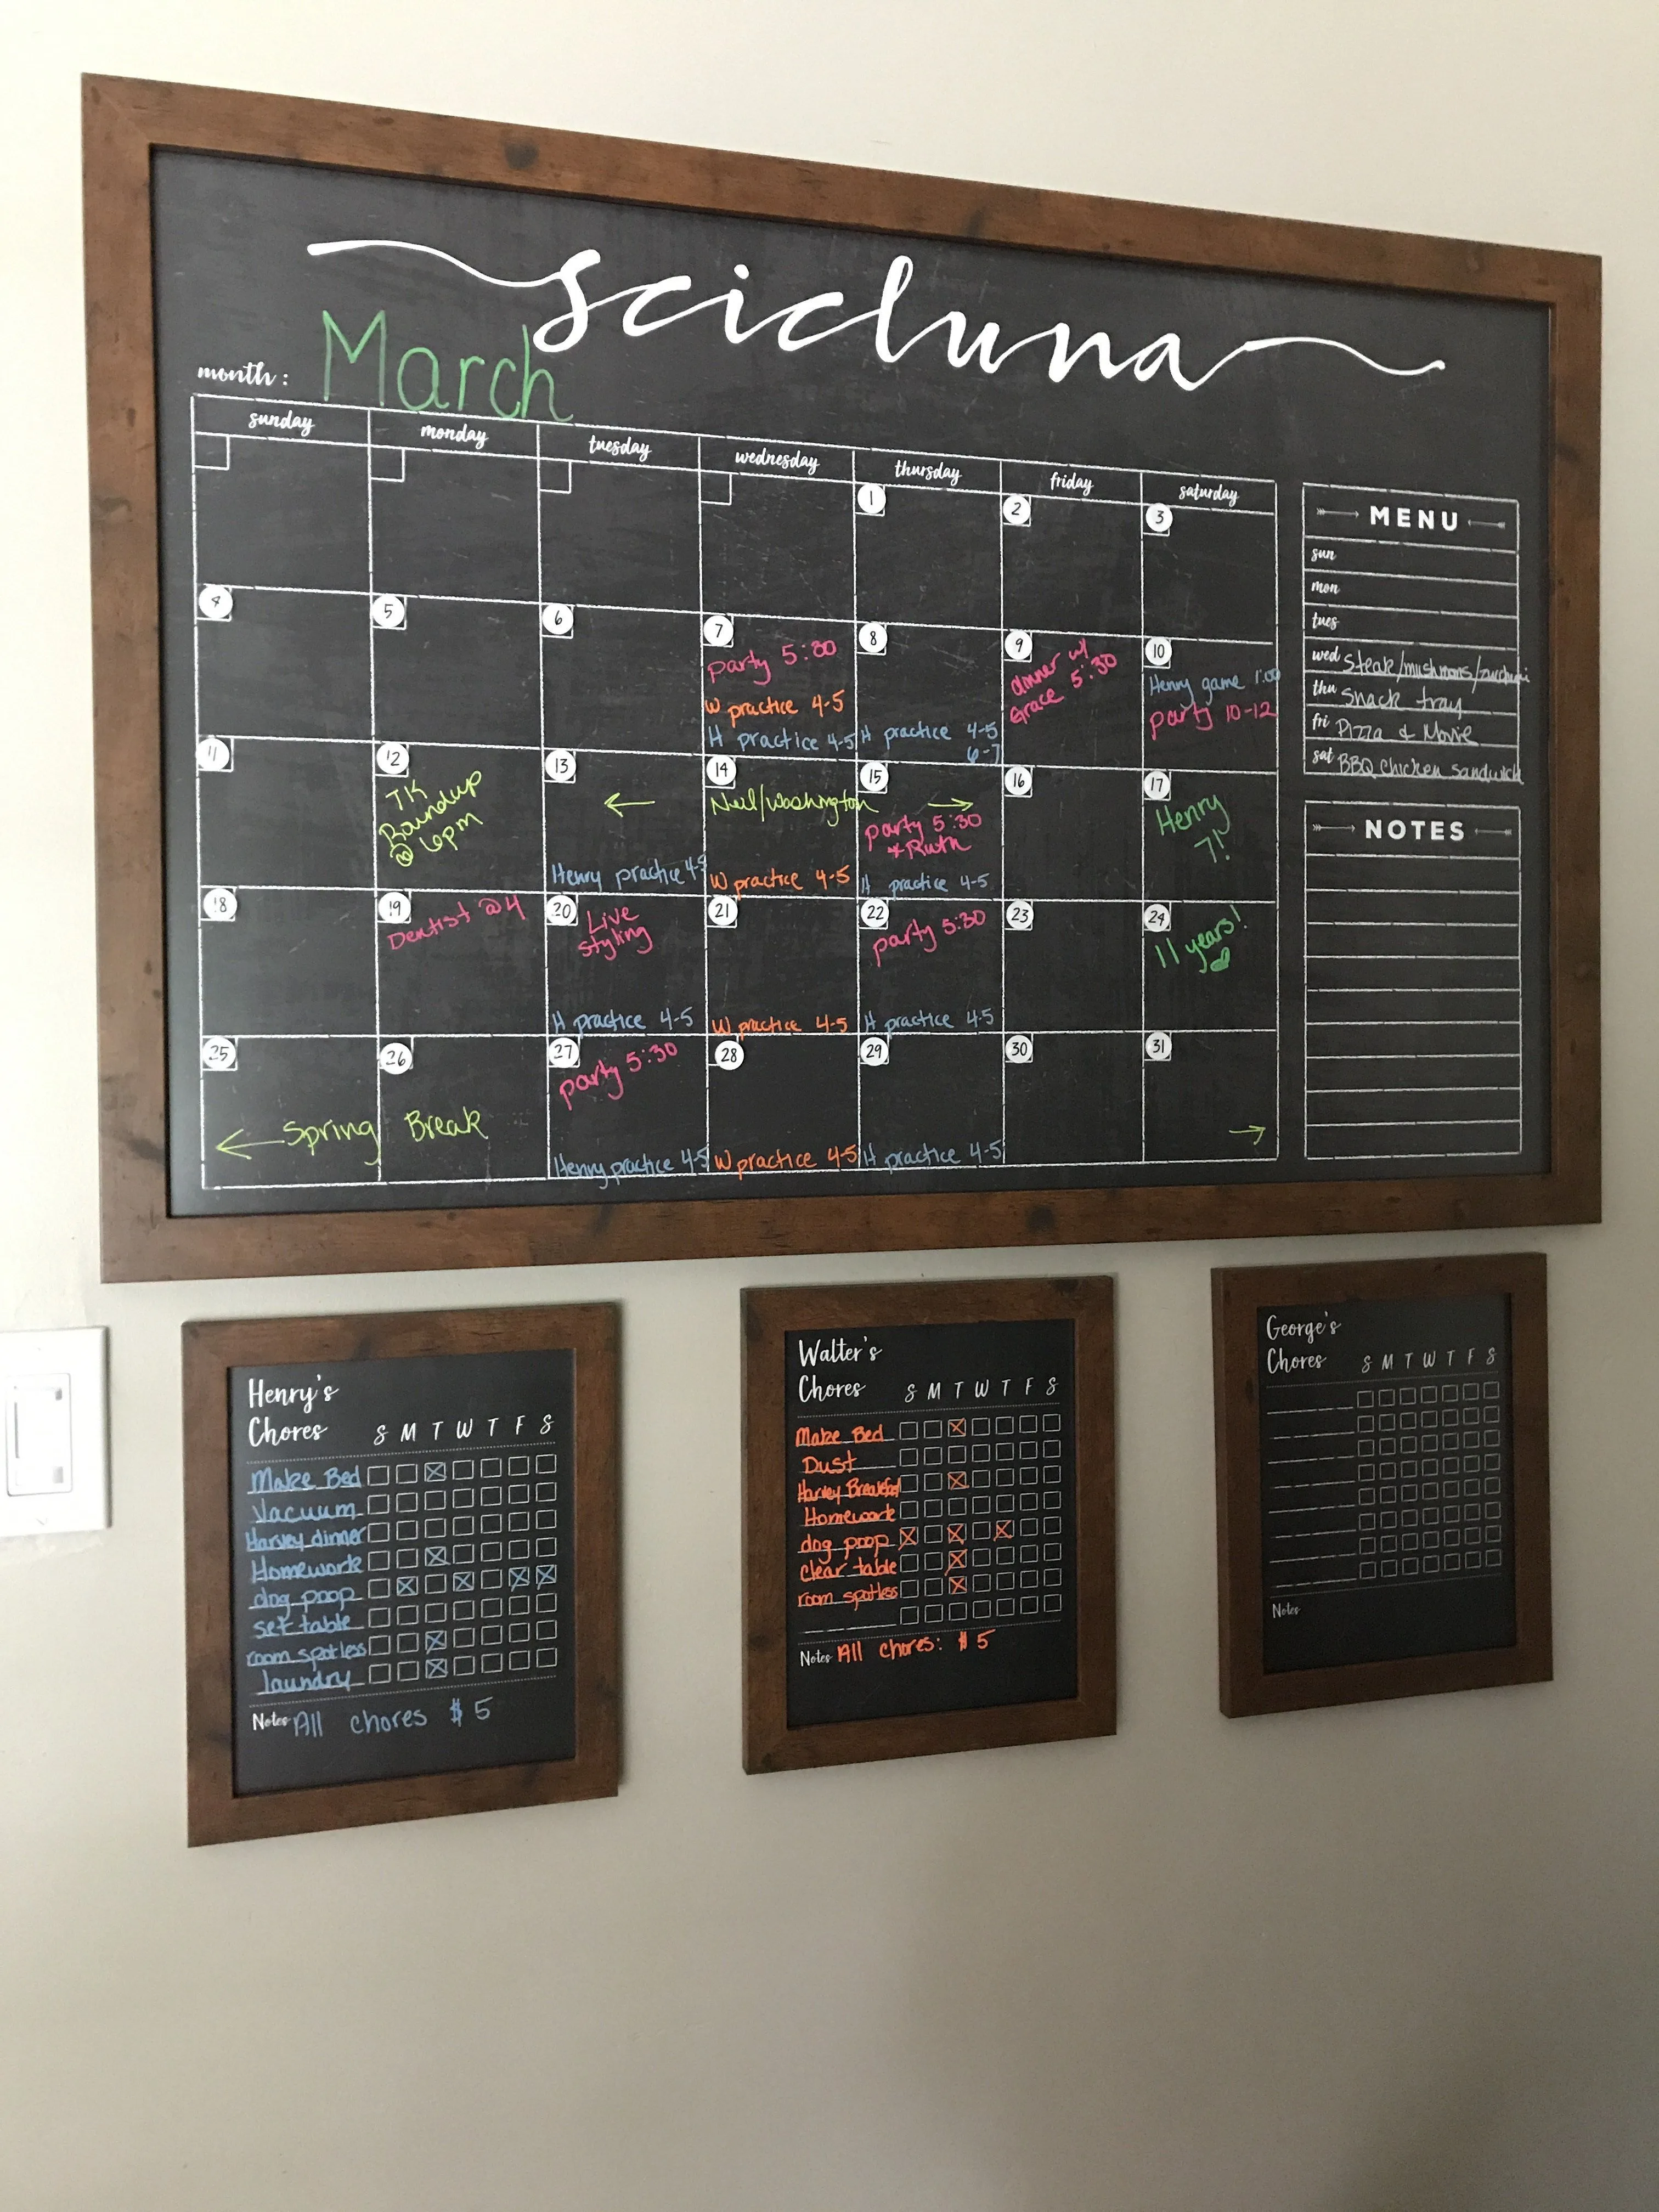 scicluna
month: March
sunday monday tuesday wednesday thursday friday saturday
1 2 3
4 5 6 7 8 9 10
party 5:00
W practice 4-5
H practice 4-5
H practice 4-5
6-7
dinner w/
Grace 5:30
Henry game 1:00
party 10-12
11 12 13 14 15 16 17
TK
Roundup
@ 6pm
← Neil/Washington →
Henry practice 4-5
W practice 4-5
party 5:30
+ Ruth
H practice 4-5
Henry
7!
18 19 20 21 22 23 24
Dentist @ 4
Live
styling
H practice 4-5
W practice 4-5
party 5:30
H practice 4-5
11 years!
25 26 27 28 29 30 31
← Spring Break →
party 5:30
Henry practice 4-5
W practice 4-5
H practice 4-5
MENU
sun
mon
tues
wed Steak/mushrooms/zucchini
thu snack tray
fri Pizza & Movie
sat BBQ Chicken Sandwich
NOTES
Henry's
Chores S M T W T F S
Make Bed
Vacuum
Harvey dinner
Homework
dog poop
set table
room spotless
laundry
Notes All chores $5
Walter's
Chores S M T W T F S
Make Bed
Dust
Harvey Breakfast
Homework
dog poop
clear table
room spotless
Notes All chores: $5
George's
Chores S M T W T F S
Notes